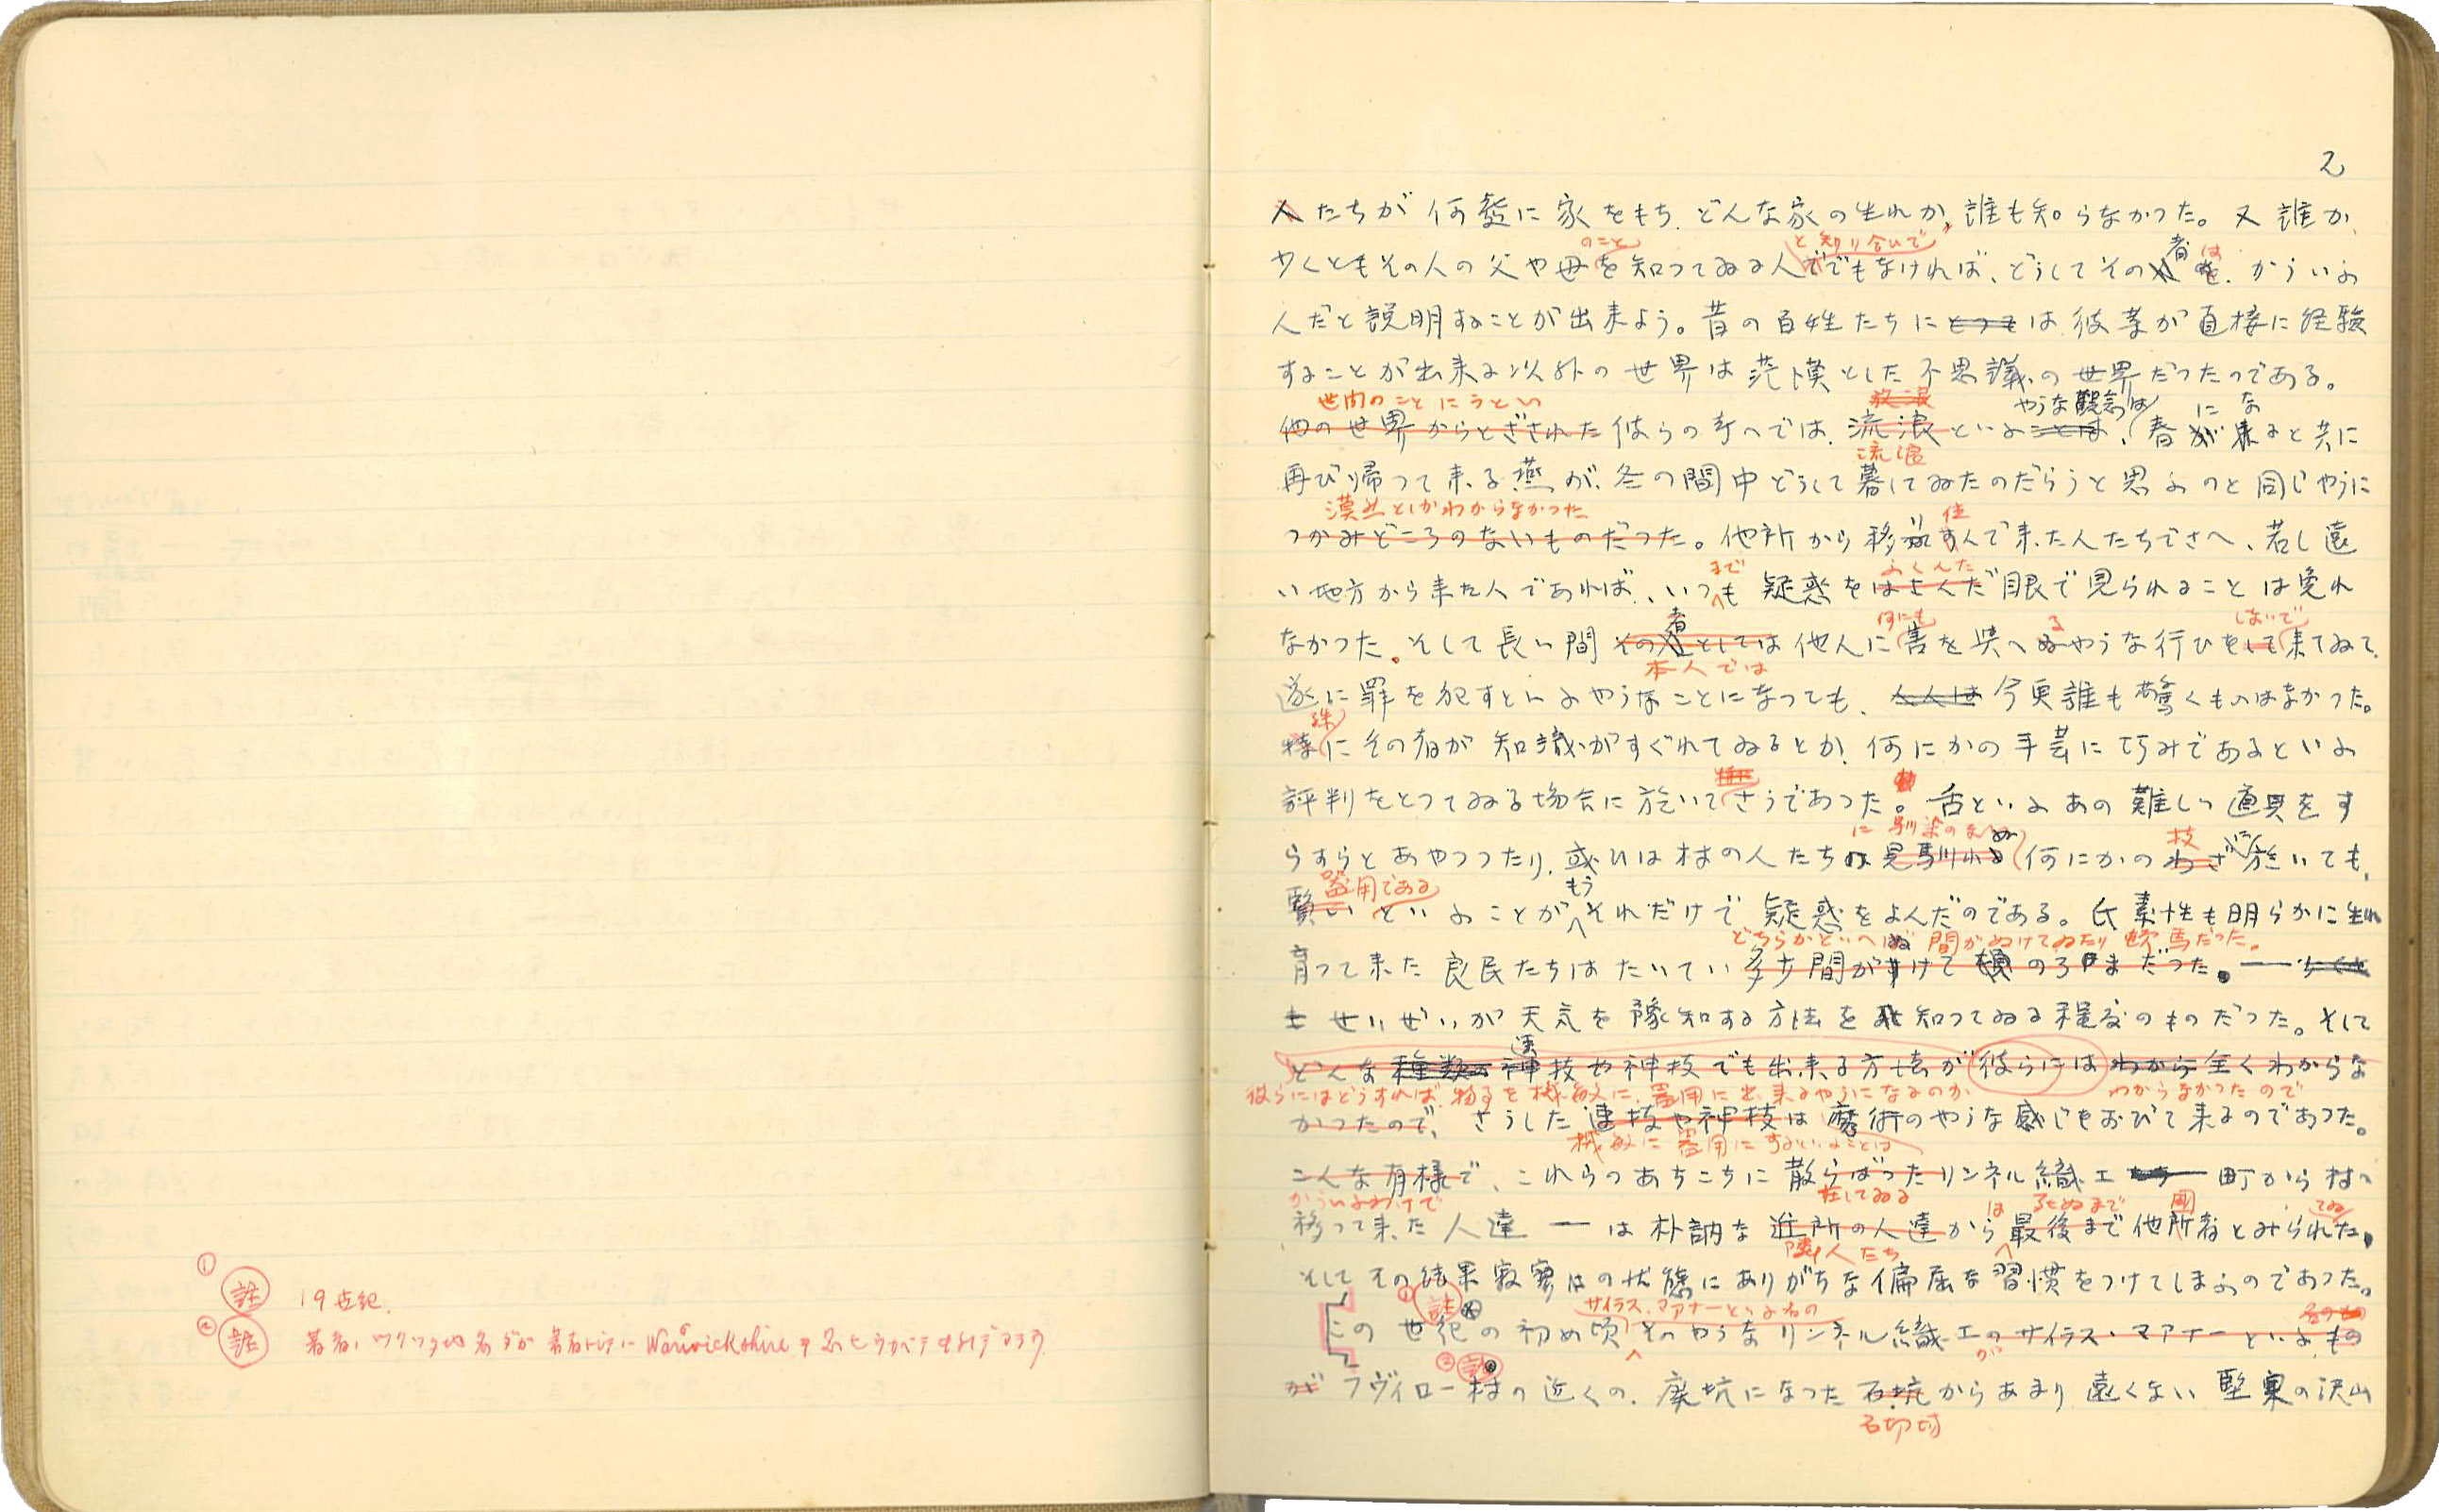 ① 註 19世紀.
② 註
Warwickshire
2
人たちが何処に家をもち、どんな家の生れか、誰も知らなかつた。又誰か、
のこと と知り合ひで 者 は
少くともその人の父や母を知つてゐる人ででもなければ、どうしてその人を、かういふ
人だと説明することが出来よう。昔の百姓たちにとつては彼等が直接に経験
することが出来る以外の世界は茫漠とした不思議の世界だつたのである。
世間のことにうとい 放浪 やうな観念は にな
他の世界からとざされた彼らの考へでは、流浪といふことは、春が来ると共に
流浪
再び帰つて来る燕が、冬の間中どうして暮してゐたのだらうと思ふのと同じやうに
漠然としかわからなかつた り 住
つかみどころのないものだつた。他所から移りすんで来た人たちでさへ、若し遠
まで ふくんだ
い地方から来た人であれば、いつも疑惑をはさんだ眼で見られることは免れ
者 何にも る しないで
なかつた。そして長い間その人としては他人に害を与へぬやうな行ひをして来てゐて、
本人では
遂に罪を犯すといふやうなことになつても、人人は今更誰も驚くものはなかつた。
殊
特にその者が知識がすぐれてゐるとか、何にかの手芸に巧みであるといふ
特に
評判をとつてゐる場合に於いてさうであつた。舌といふあの難しい道具をす
に馴染のない 技 に
らすらとあやつつたり、或ひは村の人たちの見馴れぬ何にかのわざ於いても、
器用である もう
賢いといふことがそれだけで疑惑をよんだのである。氏素性も明らかに生れ
どちらかといへば 間がぬけてゐたり 馬だつた。
育つて来た良民たちはたいてい多少間がぬけてのろまだつた。——少くと
もせいぜいが天気を豫知する方法を知つてゐる程度のものだつた。そして
速
どんな種類の神技や神技でも出来る方法が彼らにはわから全くわからな
彼らにはどうすれば、物事を機敏に、器用に出来るやうになるのか わからなかつたので
かつたので、さうした速技や神技は魔術のやうな感じをおびて来るのであつた。
機敏に器用にするといふことは
こんな有様で、これらのあちこちに散らばつたリンネル織工——町から村へ
かういふわけで 在してゐる は 死ぬまで 国 てゐ
移つて来た人達——は朴訥な近所の人達から最後まで他所者とみられた。
隣人たち
そしてその結果寂寥の状態にありがちな偏屈な習慣をつけてしまふのであつた。
①註 サイラス・マアナーといふ名の
この世紀の初め頃そのやうなリンネル織工のサイラス・マアナーといふもの
が ②註
がラヴィロー村の近くの、廃坑になつた石坑からあまり遠くない堅果の沢山
石切場